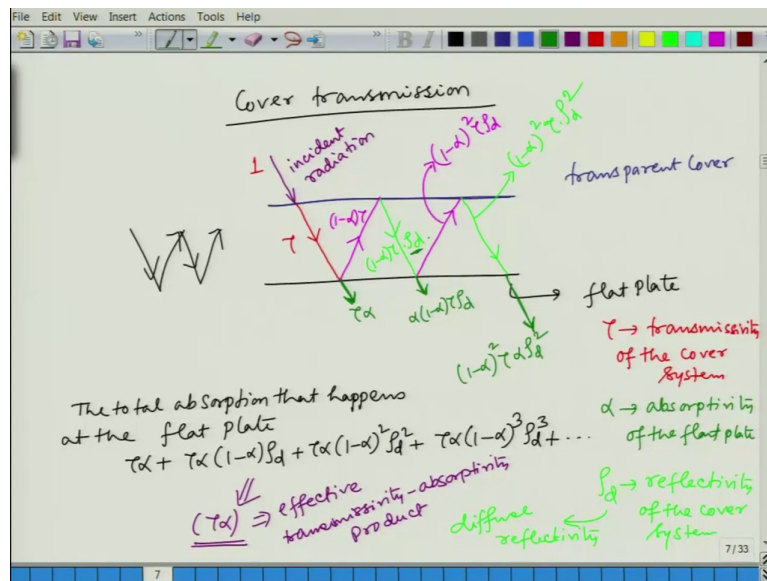 File Edit View Insert Actions Tools Help
Cover transmission
1
incident
radiation
(1-α)²τρd
(1-α)²τ.ρd²
transparent cover
τ
(1-α)τ
(1-α)τ.ρd.
τα
α(1-α)τρd
(1-α)²ταρd²
flat plate
τ → transmissivity
of the cover
system
α → absorptivity
of the flat plate
ρd → reflectivity
of the cover
system
diffuse
reflectivity
The total absorption that happens
at the flat plate
τα + τα(1-α)ρd + τα(1-α)²ρd² + τα(1-α)³ρd³ + ...
(τα) ⇒ effective
transmissivity-absorptivity
product
7/33
7